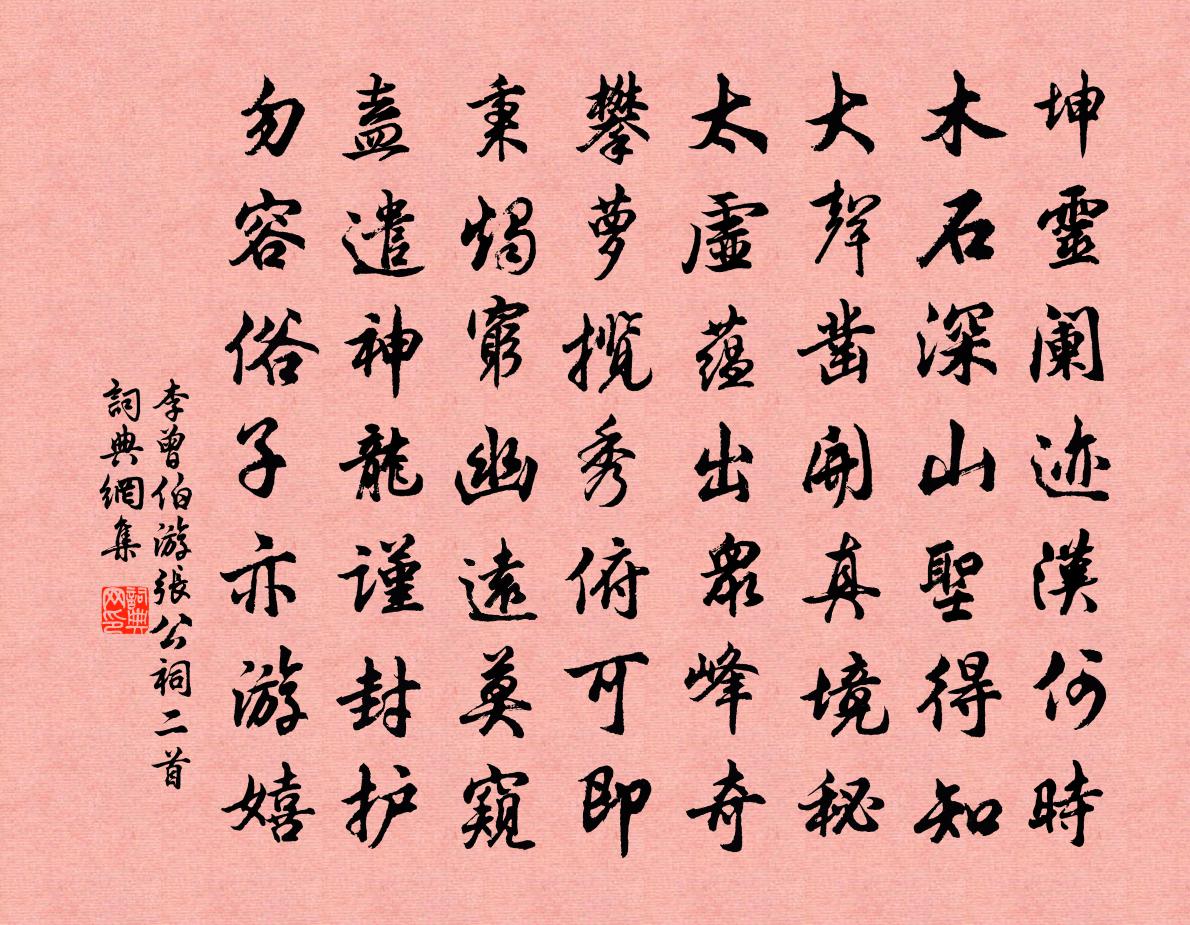 坤靈闌迹漠何時
木石深山聖得知
大聲凿開真境秘
太虛蕴出眾峰奇
攀萝揽秀俯可即
秉燭窮幽遠莫窺
盍遣神龍謹封护
勿容俗子亦游嬉
李曾伯游張公祠二首
詞典網集
詞典网印